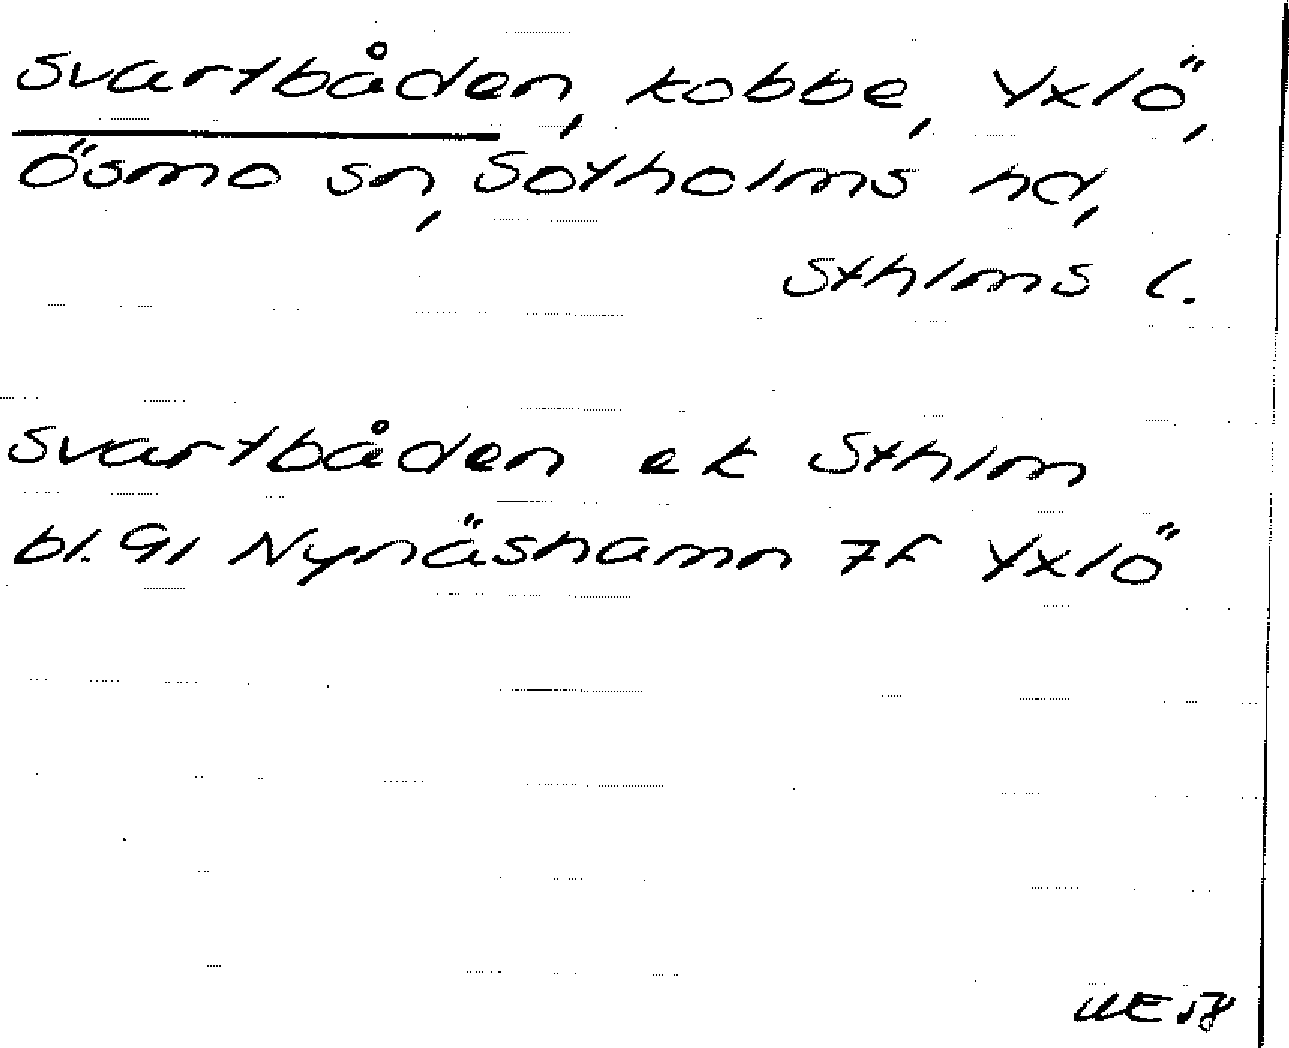 Svartbåden, kobbe, Yxlö,
Ösmo sn, Sotholms hd,
Sthlms l.
Svartbåden ek Sthlm
bl. 91 Nynäshamn 7f Yxlö
UE 58